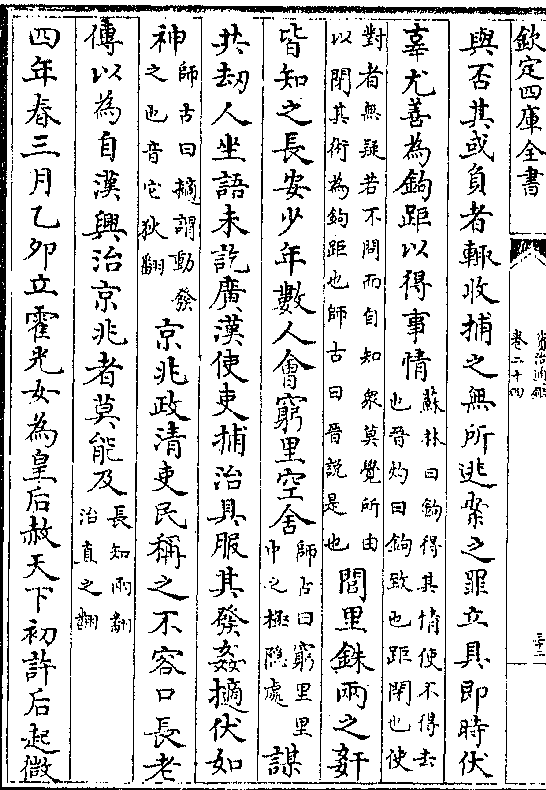 欽定四庫全書
資治通鑑
卷二十四
三十二
與否其或負者輒收捕之無所逃案之罪立具即時伏
辜尤善為鉤距以得事情
蘇林曰鉤得其情使不得去
也晉灼曰鉤致也距閉也使
對者無疑若不問而自知衆莫覺所由
以閉其術為鉤距也師古曰晉說是也
閭里銖兩之姧
皆知之長安少年數人會窮里空舍
師古曰窮里里
中之極隱處
謀
共刼人坐語未訖廣漢使吏捕治具服其發姦擿伏如
神
師古曰擿謂動發
之也音它狄翻
京兆政清吏民稱之不容口長老
傳以為自漢興治京兆者莫能及
長知兩翻
治直之翻
四年春三月乙夘立霍光女為皇后赦天下初許后起微